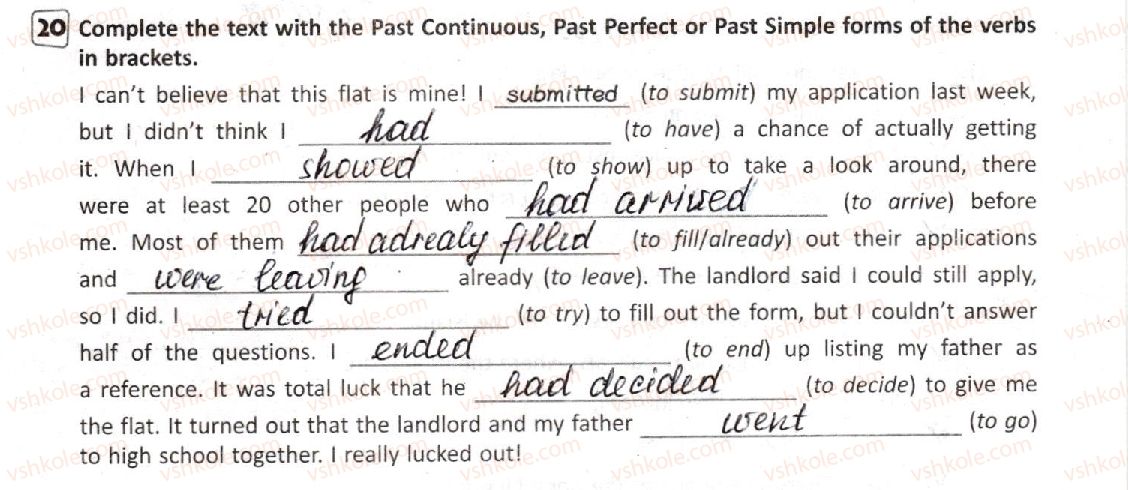 20 Complete the text with the Past Continuous, Past Perfect or Past Simple forms of the verbs
in brackets.
I can't believe that this flat is mine! I submitted (to submit) my application last week,
but I didn't think I had (to have) a chance of actually getting
it. When I showed (to show) up to take a look around, there
were at least 20 other people who had arrived (to arrive) before
me. Most of them had adrealy filled (to fill/already) out their applications
and were leaving already (to leave). The landlord said I could still apply,
so I did. I tried (to try) to fill out the form, but I couldn't answer
half of the questions. I ended (to end) up listing my father as
a reference. It was total luck that he had decided (to decide) to give me
the flat. It turned out that the landlord and my father went (to go)
to high school together. I really lucked out!